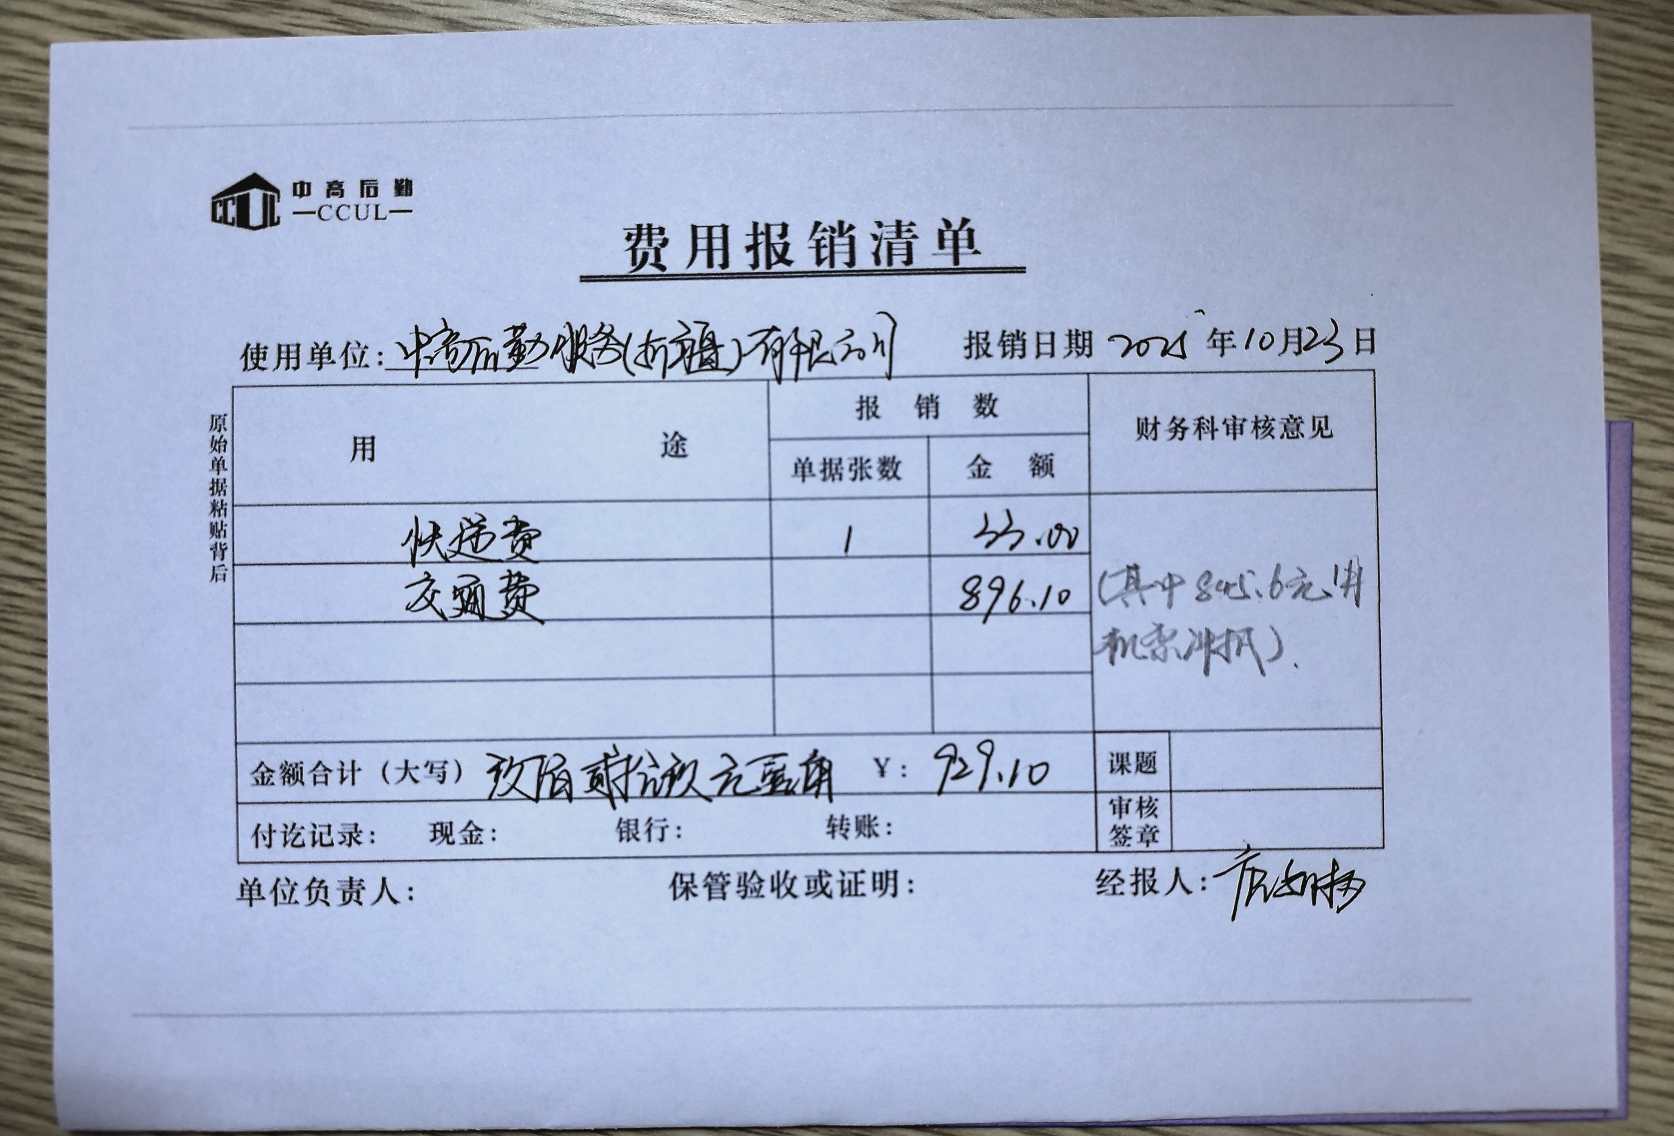 中高后勤
CCUL
费用报销清单
使用单位：中高后勤服务()有限公司 报销日期 2025年10月23日
原始单据粘贴背后
用途 报销数 财务科审核意见
单据张数 金额
快递费 1 33.00
交通费 896.10
(其中845.6元
机票冲抵).
金额合计（大写）玖佰贰拾玖元壹角 ￥：929.10 课题
付讫记录： 现金： 银行： 转账： 审核签章
单位负责人： 保管验收或证明： 经报人：